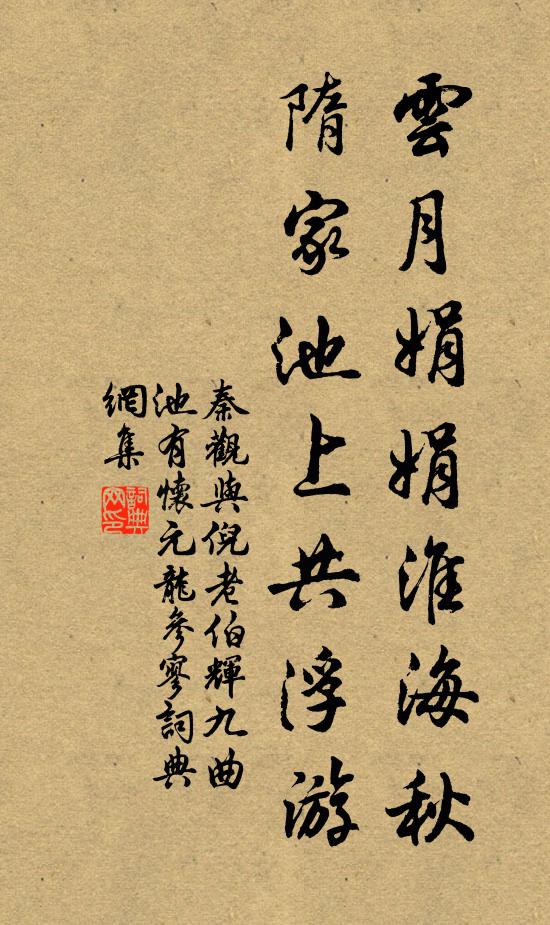 雲月娟娟淮海秋
隋家池上共浮游
秦觀與倪老伯輝九曲
池有懷元龍參寥詞典
網集
詞典網印